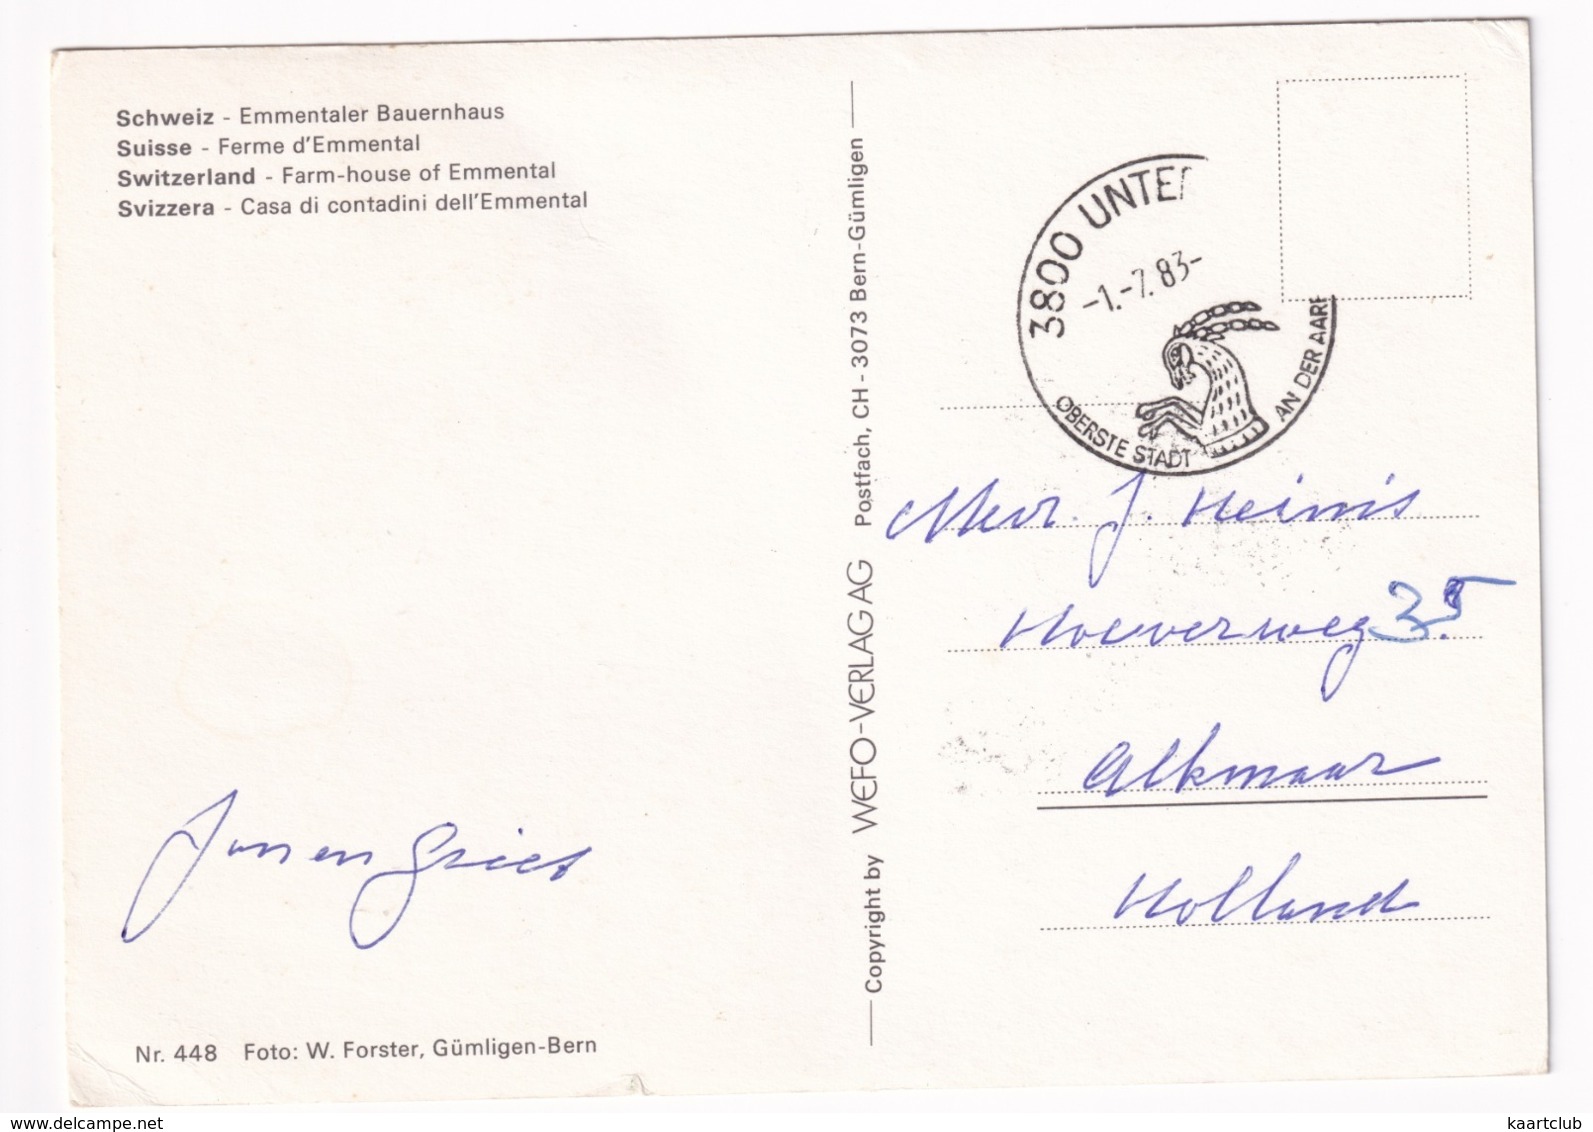 Schweiz - Emmentaler Bauernhaus
Suisse - Ferme d'Emmental
Switzerland - Farm-house of Emmental
Svizzera - Casa di contadini dell'Emmental
Nr. 448 Foto: W. Forster, Gümligen-Bern
Copyright by WEFO-VERLAG AG Postfach, CH - 3073 Bern-Gümligen
3800 UNTER
-1.-7.83-
OBERSTE STADT AN DER AARE
Mevr. J. Heinis
Hoeverweg 35
Alkmaar
Holland
kaartclub
www.delcampe.net